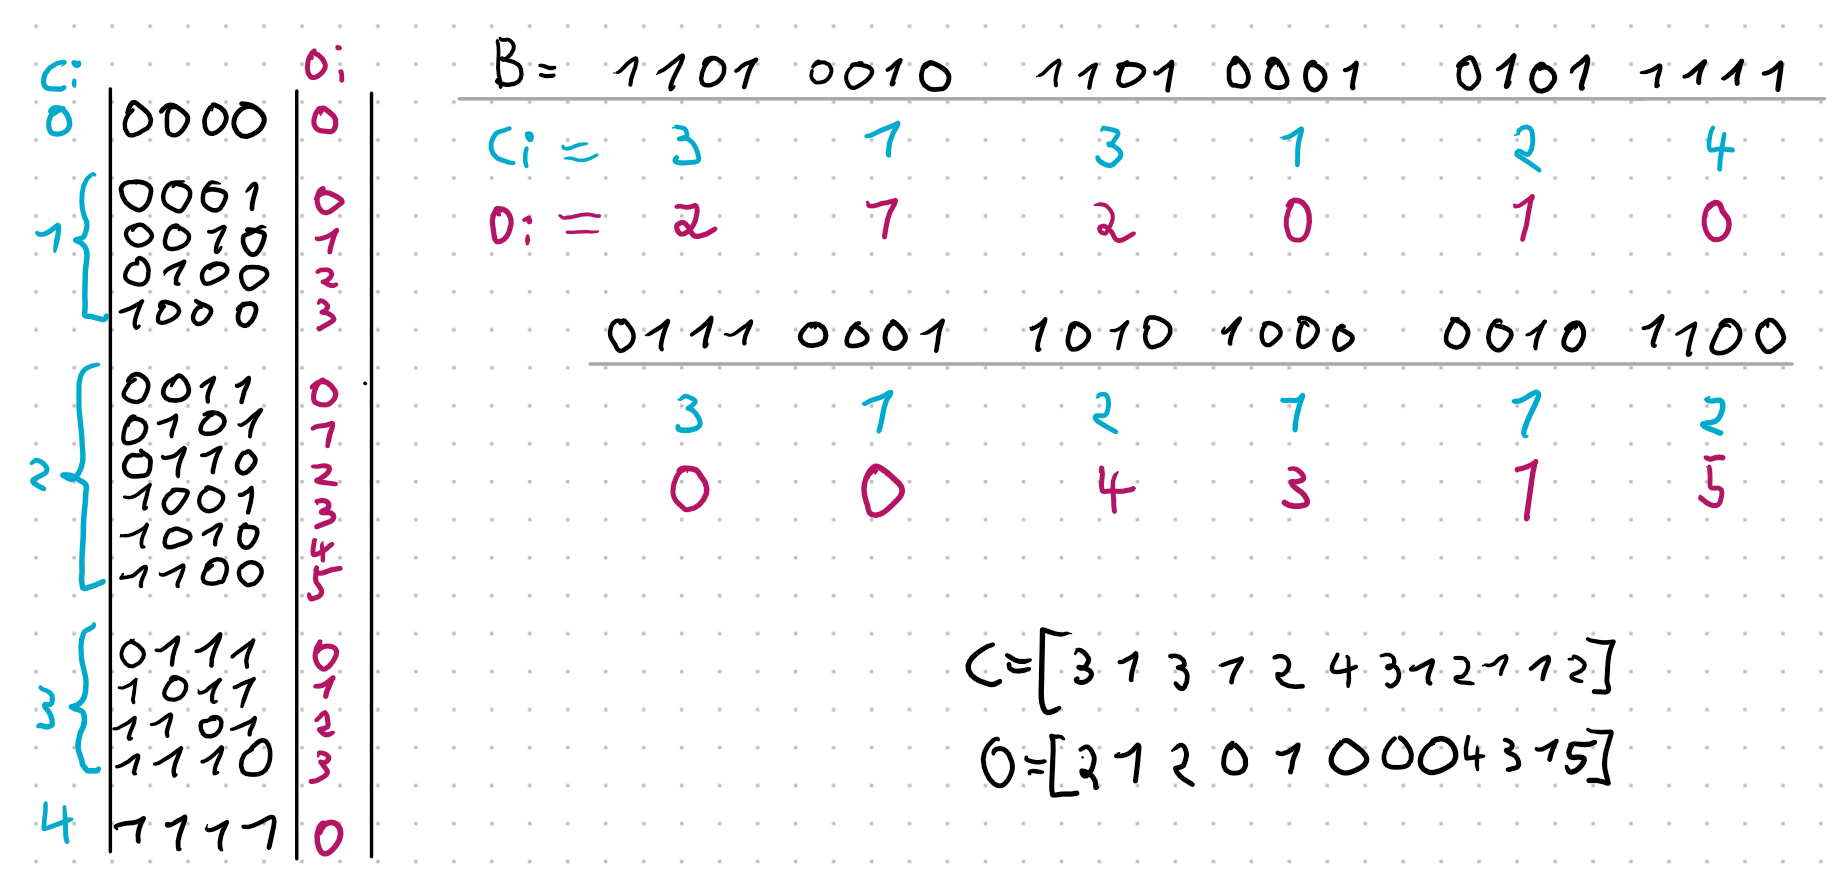 Ci Oi
0 0000 0
1 0001 0
0010 1
0100 2
1000 3
2 0011 0
0101 1
0110 2
1001 3
1010 4
1100 5
3 0111 0
1011 1
1101 2
1110 3
4 1111 0
B= 1101 0010 1101 0001 0101 1111
Ci = 3 1 3 1 2 4
Oi = 2 1 2 0 1 0
0111 0001 1010 1000 0010 1100
3 1 2 1 1 2
0 0 4 3 1 5
C=[3 1 3 1 2 4 3 1 2 1 1 2]
O=[2 1 2 0 1 0 0 0 4 3 1 5]